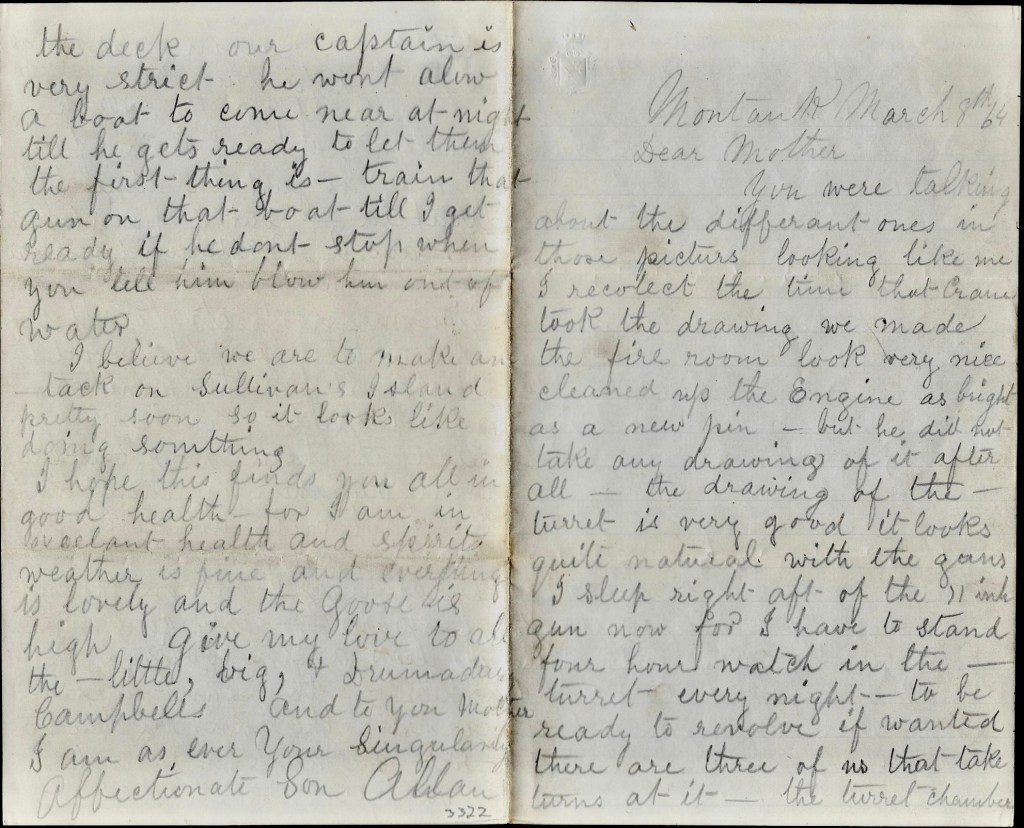 Montauk March 8th/64
Dear Mother
You were talking
about the differant ones in
those picturs looking like me
I recolect the time that Crane
took the drawing we made
the fire room look very nice
cleaned up the Engine as bright
as a new pin – but he did not
take any drawing of it after
all – the drawing of the –
turret is very good it looks
quite natural with the guns
I sleep right aft of the 11 inh
gun now for I have to stand
four hour watch in the –
turret every night – to be
ready to revolve if wanted
there are three of us that take
turns at it – the turret chamber
the deck our captain is
very strict he wont alow
a boat to come near at night
till he gets ready to let them
the first thing is – train that
gun on that boat till I get
ready if he dont stop when
you tell him blow him out of
water
I believe we are to make an
tack on Sullivan's Island
pretty soon so it looks like
doing somthing
I hope this finds you all in
good health – for I am in
excelant health and spirits
weather is fine and everything
is lovely and the Goose is
high Give my love to all
the – little, big, &
Campbells and to you Mother
I am as ever Your Singularly
Affectionate Son Allan
3322